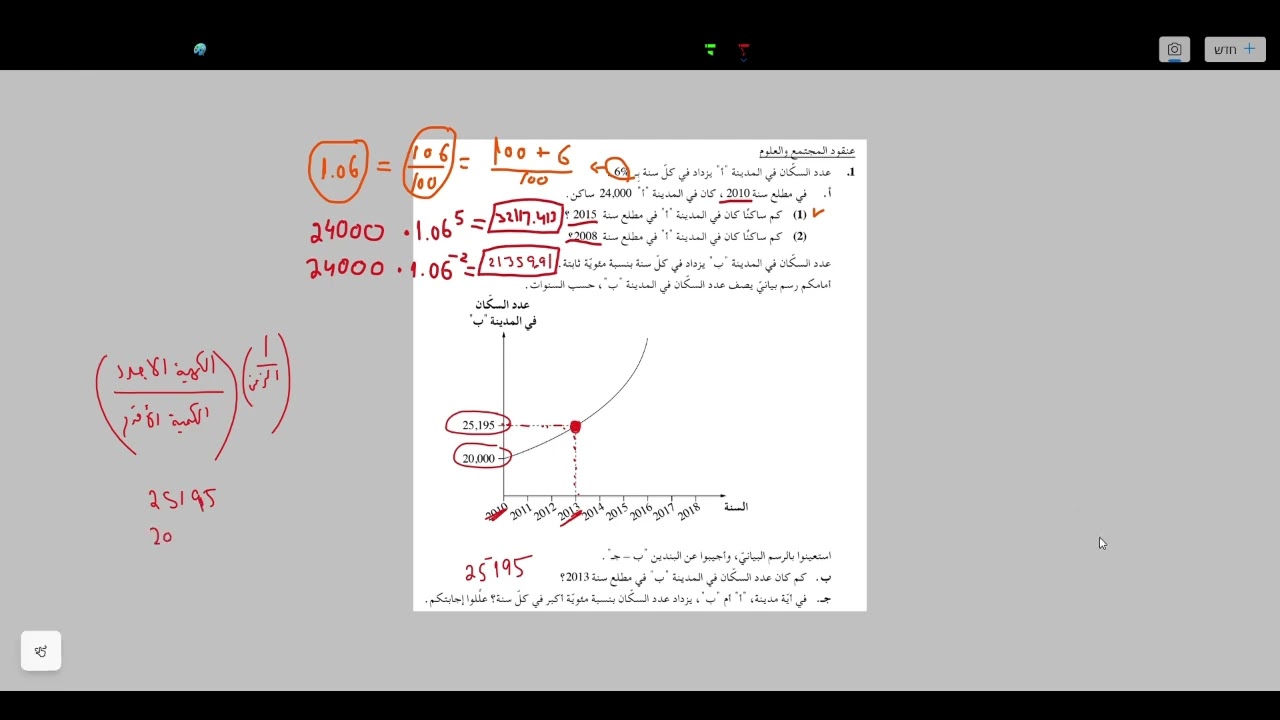 חדש
عنقود المجتمع والعلوم
1. عدد السكّان في المدينة "أ" يزداد في كلّ سنة بِـ 6% .
أ. في مطلع سنة 2010 ، كان في المدينة "أ" 24,000 ساكن.
(1) كم ساكنًا كان في المدينة "أ" في مطلع سنة 2015 ؟
(2) كم ساكنًا كان في المدينة "أ" في مطلع سنة 2008؟
1.06 = 106/100 = 100 + 6/100
24000 · 1.06^5 = 32117.413
24000 · 1.06^-2 = 21359.91
عدد السكّان في المدينة "ب" يزداد في كلّ سنة بنسبة مئويّة ثابتة.
أمامكم رسم بيانيّ يصف عدد السكّان في المدينة "ب"، حسب السنوات.
عدد السكّان
في المدينة "ب"
25,195
20,000
2010 2011 2012 2013 2014 2015 2016 2017 2018
السنة
(الكمية الاجدد/الكمية الأقدم)^(1/الزمن)
25195
20
استعينوا بالرسم البيانيّ، وأجيبوا عن البندين "ب – جـ" .
ب. كم كان عدد السكّان في المدينة "ب" في مطلع سنة 2013؟
25195
جـ. في أيّة مدينة، "أ" أم "ب"، يزداد عدد السكّان بنسبة مئويّة أكبر في كلّ سنة؟ علّلوا إجابتكم.